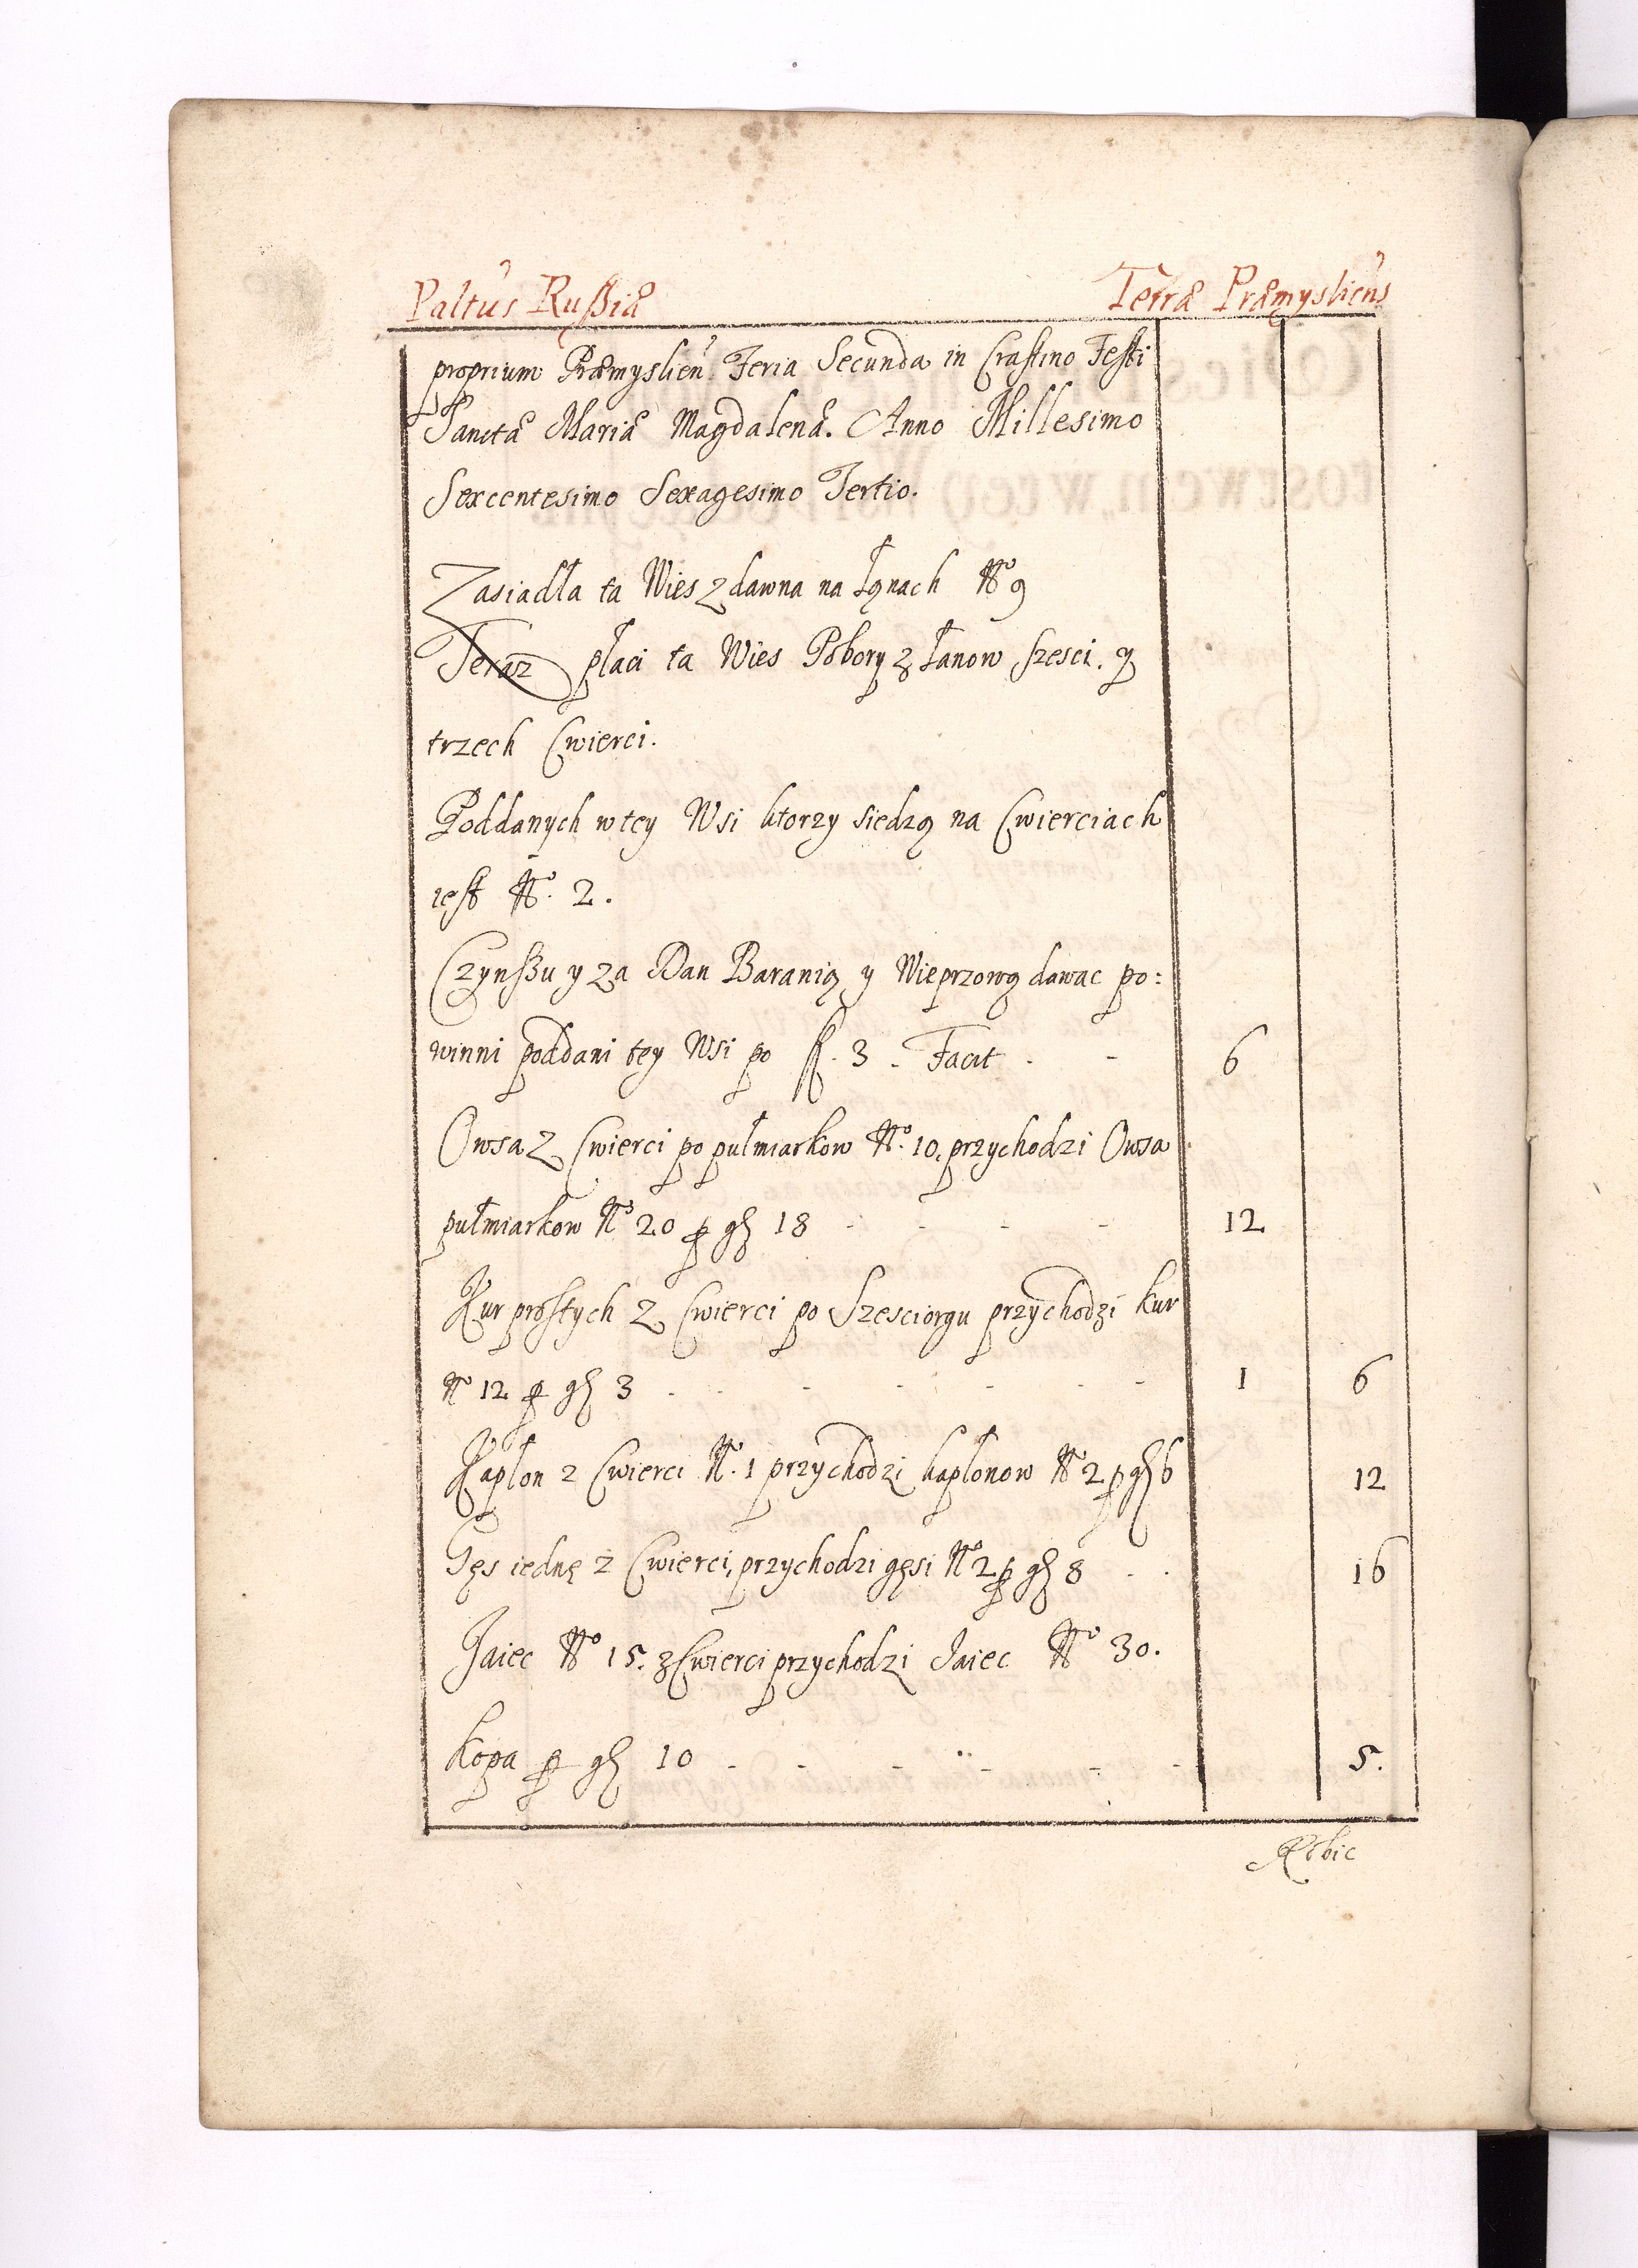 Paltus Rußiæ Terræ Præmyslien̄s
proprium Præmyslien̄ Feria Secunda in Crastino Festi
Sanctæ Mariæ Magdalenæ. Anno Millesimo
Sexcentesimo Sexagesimo Tertio.
Zasiadła ta Wies z dawna na Łąnach No 9
Teraz płaci ta Wies Pobory z Łanow szesci. y
trzech Cwierci.
Poddanych w tey Wsi ktorzy siedzą na Cwierciach
iest No. 2.
Czynßu y za Dan Baranią y Wieprzową dawac po:
winni poddani tey Wsi po fl. 3 - Facit - - 6
Owsa z Cwierci po pułmiarkow No. 10. przychodzi Owsa
pułmiarkow No 20 p gß 18 - - - - 12
Kur prostych z Cwierci po Szesciorgu przychodzi kur
No 12 p gß 3 - - - - - - - 1 6
Kapłon z Cwierci No. 1 przychodzi kapłonow No 2 p gß 6 12
Gęs iednę z Cwierci, przychodzi gęsi No 2 p gß 8 - - 16
Jaiec No 15. z Cwierci przychodzi Jaiec No 30.
kopa p gß 10 - - - - - - 5.
Robic